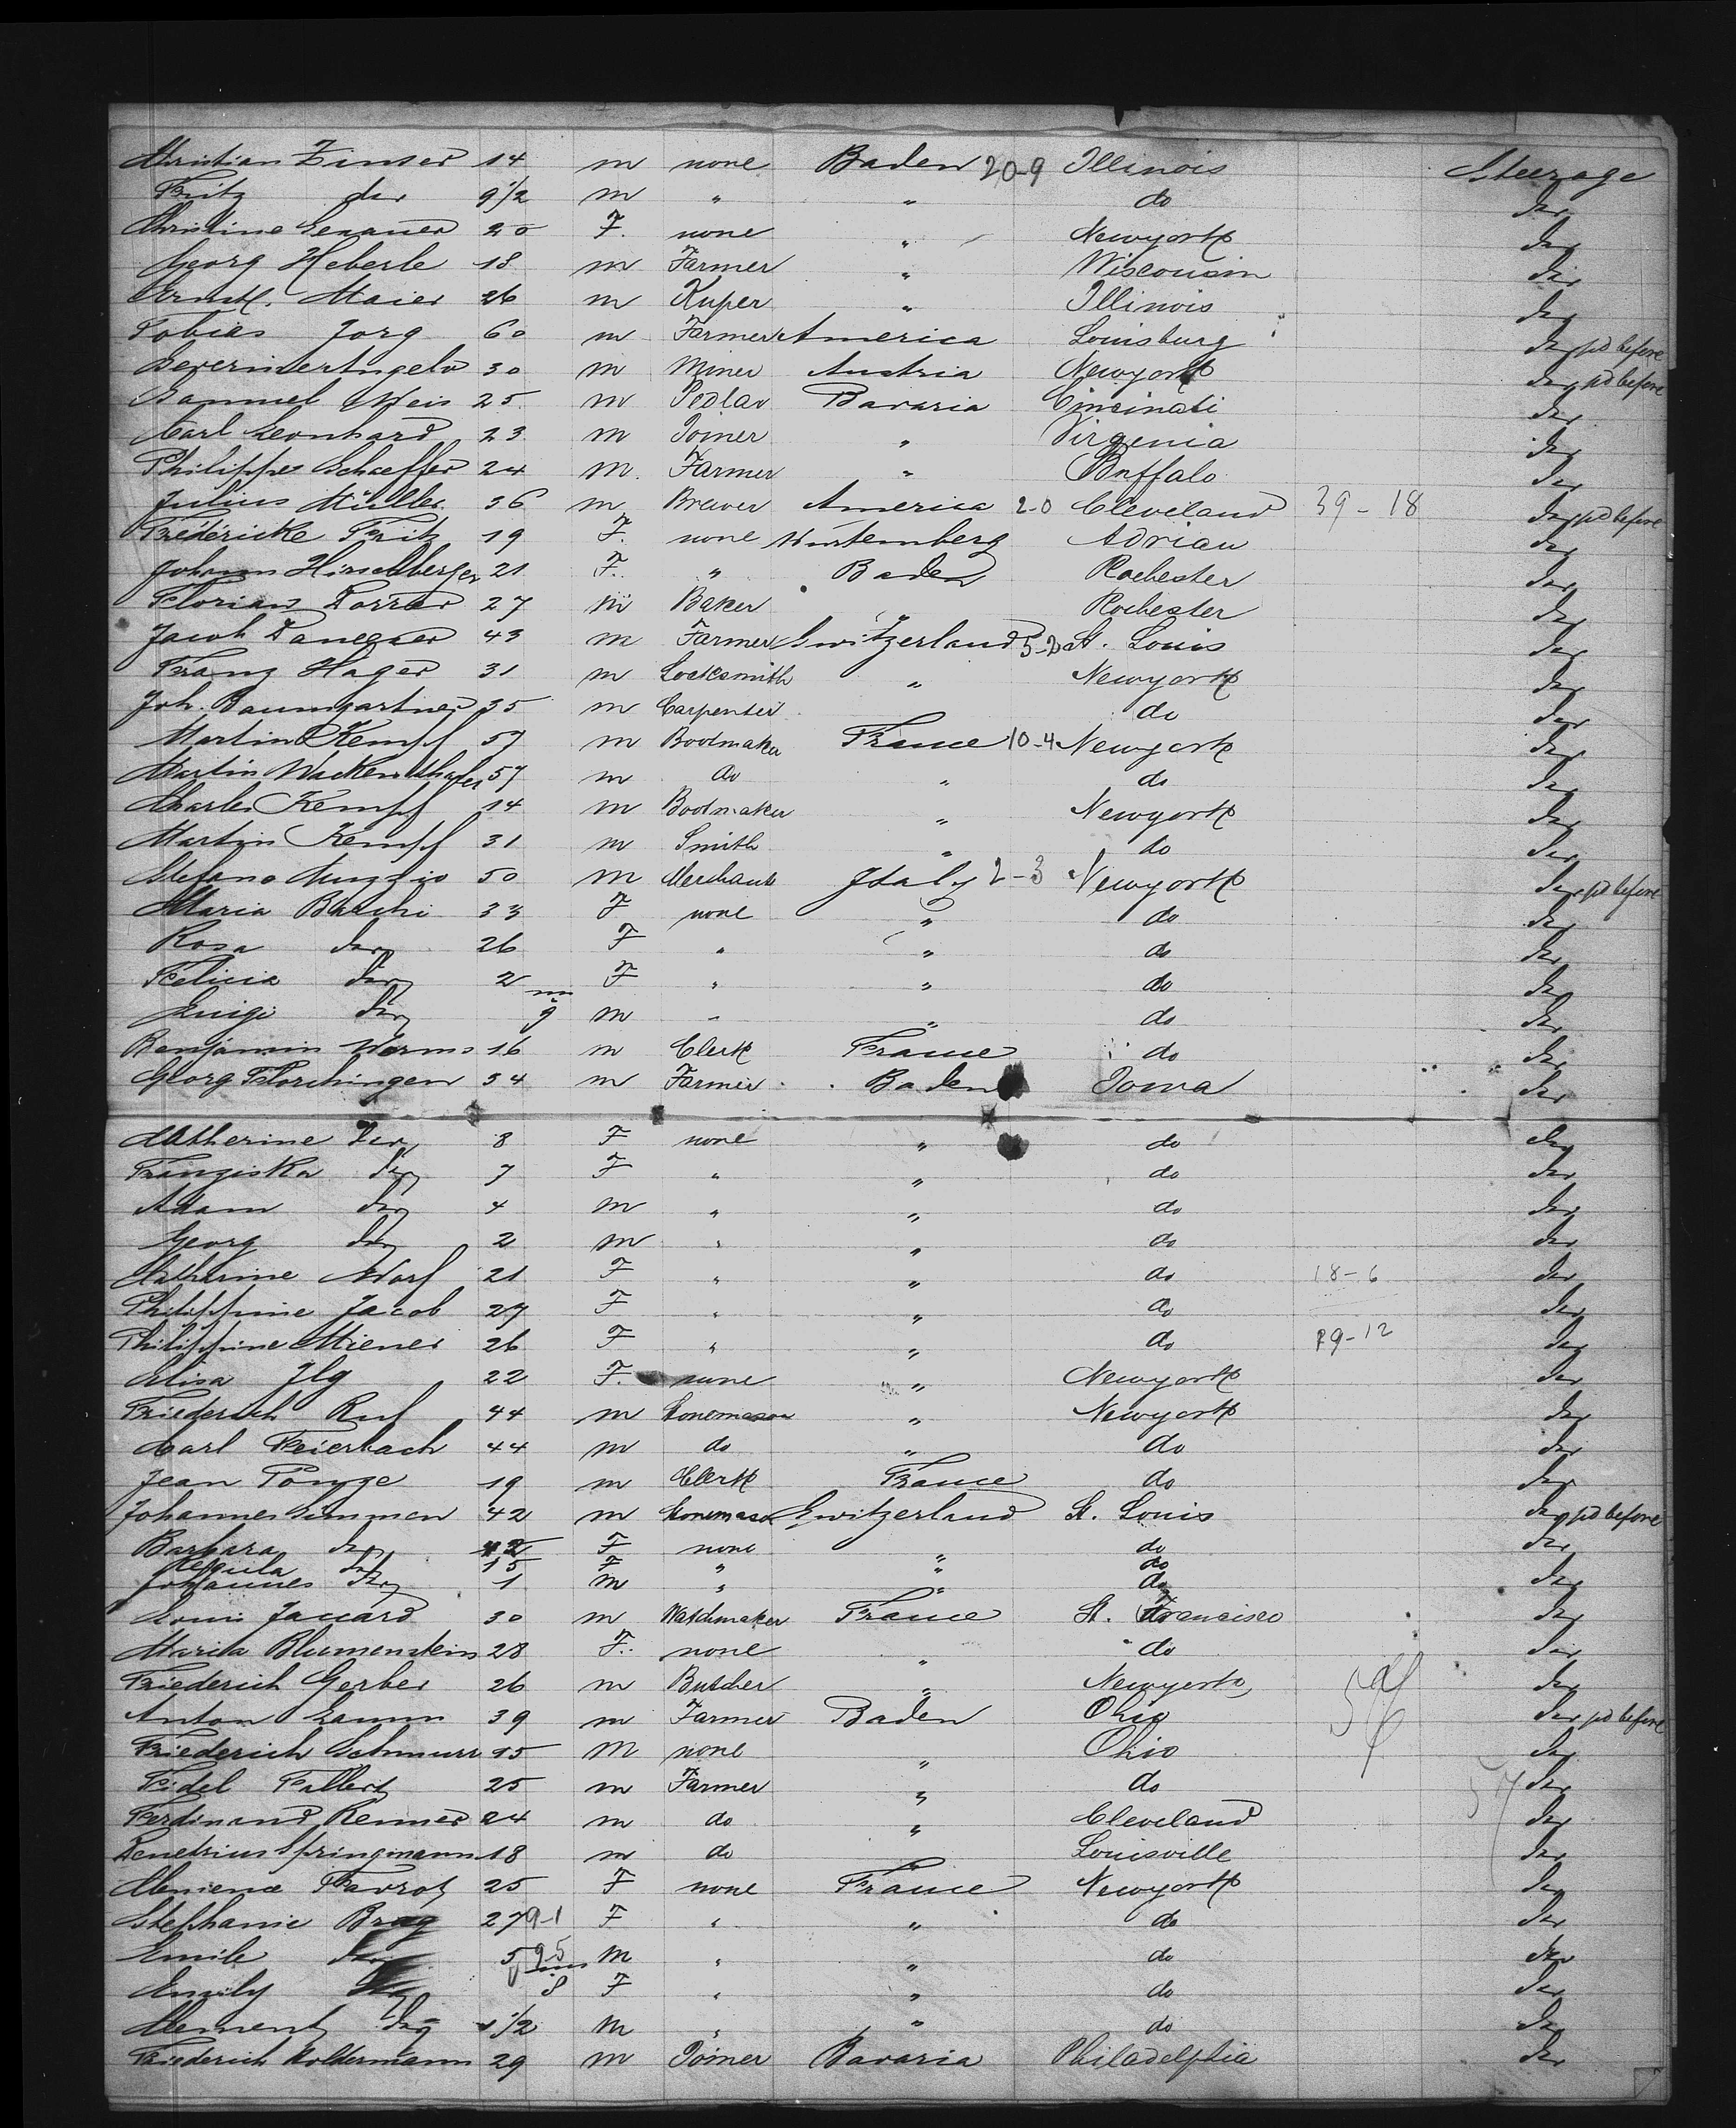 Christian Zinser 14 m none Baden 20-9 Illinois Steerage
Fritz do 9 1/2 m " " do do
Christine 20 F. none " Newyork do
Georg Heberle 18 m Farmer " Wisconsin do
Ernst. Maier 26 m Kuper " Illinois do
Tobias Jorg 60 m Farmer America Louisburg do pd before
30 m Miner Austria Newyork do pd before
Samuel Weis 25 m Pedlar Bavaria Cincinati do
Carl Leonhard 23 m Joiner " Virgenia do
Philippe Schaeffer 24 m. Farmer " Buffalo do
Julius Müller 36 m Brewer America 2-0 Cleveland 39-18 do pd before
Frédericke Fritz 19 F. none Würtemberg Adrian do
Johann Hirschberger 21 F. " Baden Rochester do
Florian Dorrer 27 m Baker " Rochester do
Jacob Danegger 43 m Farmer Switzerland 5-2 St. Louis do
Franz Hager 31 m Locksmith " Newyork do
Joh. Baumgartner 35 m Carpenter do do
Martin Kempf 57 m Bootmaker France 10-4 Newyork do
Martin Wackenthaler 57 m do " do do
Charles Kempf 14 m Bootmaker " Newyork do
Martin Kempf 31 m Smith " do do
Stefano 50 m Merchant Italy 2-3 Newyork do pd before
Maria Barchi 33 F none " do do
Rosa do 26 F " " do do
Felicia do 2 F " " do do
Luigi do 9 m " " do do
Benjamin Worms 16 m Clerk France do do
Georg Florchingen 34 m Farmer Baden Iowa do
Catherine do 8 F none " do do
Franziska do 7 F " " do do
Adam do 4 m " " do do
Georg do 2 m " " do do
Catherine Worf 21 F " " do 18-6 do
Philippine Jacob 27 F " " do do
Philippine Miener 26 F " " do 29-12 do
Elisa Ilg 22 F. none " Newyork do
Friederich Ruf 44 m Stonemason " Newyork do
Carl Feierbach 44 m do " do do
Jean Ponge 19 m Clerk France do do
Johannes Simmen 42 m Stonemason Switzerland St. Louis do pd before
Barbara do 42 F none do do
Regula do 15 F " " do
Johannes do 1 m " " do do
Louis Jaccard 30 m Watchmaker France St. Francisco do
Maria Blumenstein 28 F. none " do do
Friederich Gerber 26 m Butcher " Newyork do
Anton Lamm 39 m Farmer Baden Ohio do pd before
Friederich Schnurr 15 m none " Ohio do
Fidel Fallert 25 m Farmer " do do
Ferdinand Renner 24 m do " Cleveland do
Demetrius Springmann 18 m do " Louisville do
Favrot 25 F none France Newyork do
Stephanie Brag 27 9-1 F " " do do
Emile do 5 95 m " " do do
Emily do 8 F " " do do
Clement do 1 1/2 m " " do do
Friederich Holdermann 29 m Joiner Bavaria Philadelphia do